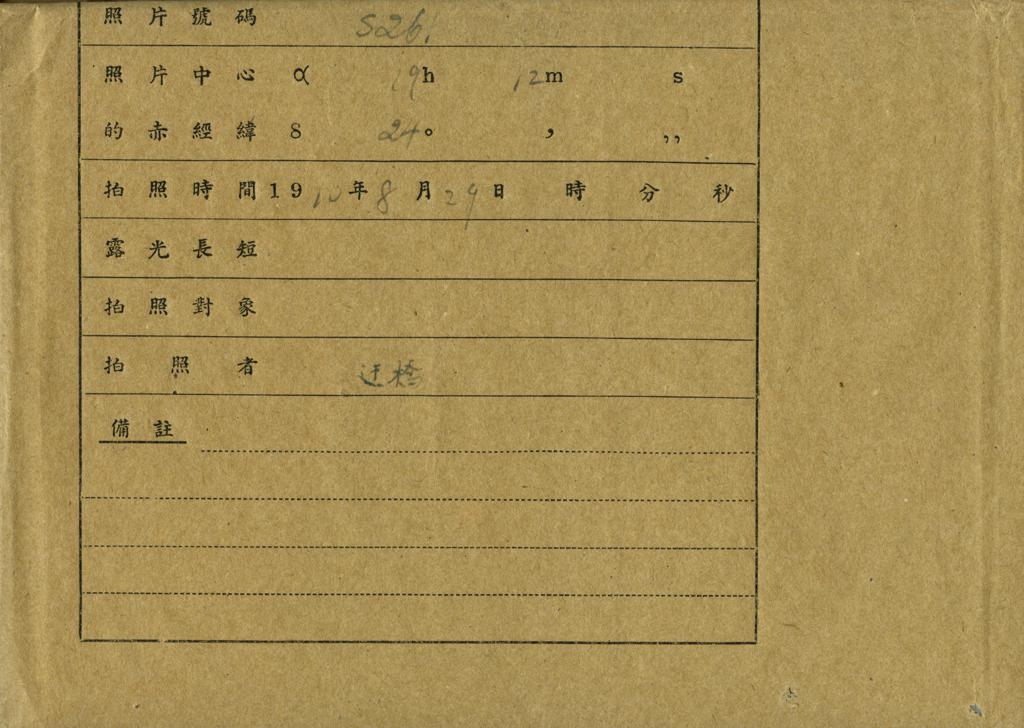 照片號碼 S261
照片中心 α 19h 12m s
的赤經緯 δ 24° ’ ’’
拍照時間19 年8月29日 時 分 秒
露光長短
拍照對象
拍照者
備註